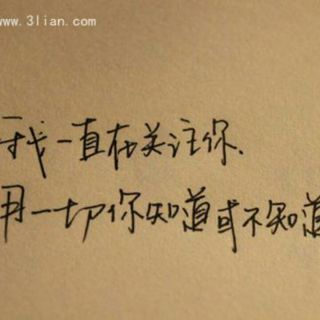 www.3lian.com
我一直在关注你.
用一切你知道或不知道